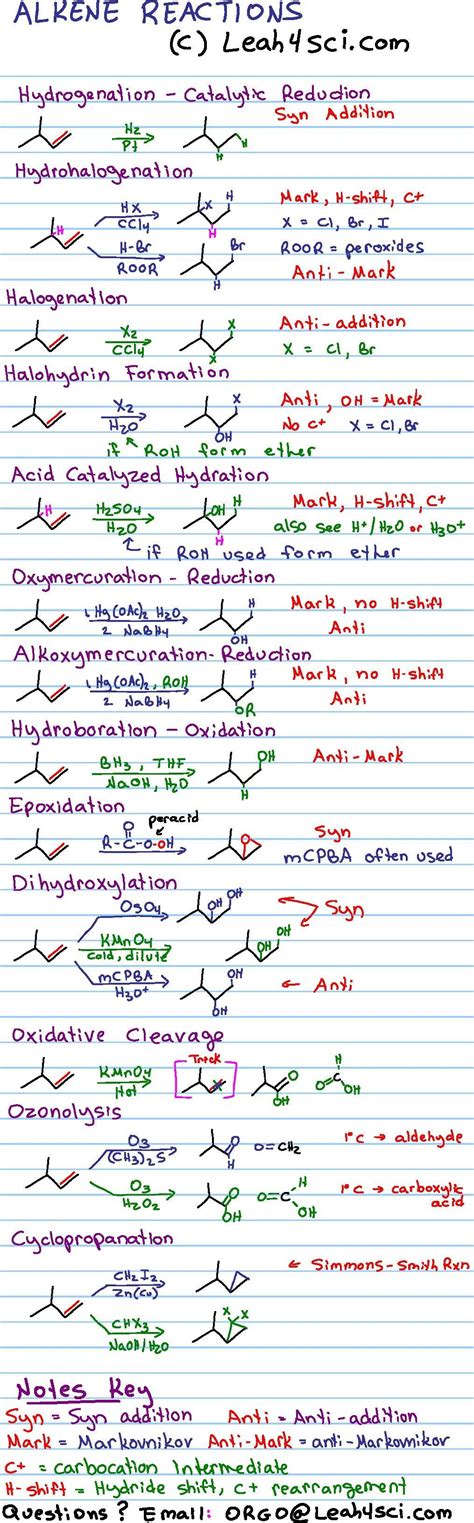 ALKENE REACTIONS
(C) Leah4sci.com
Hydrogenation - Catalytic Reduction
Syn Addition
H2
Pt
H
H
Hydrohalogenation
H
HX
CCl4
X
H
H
Mark, H-shift, C+
X = Cl, Br, I
H-Br
ROOR
Br
H
ROOR = peroxides
Anti-Mark
Halogenation
X2
CCl4
X
X
Anti-addition
X = Cl, Br
Halohydrin Formation
X2
H2O
X
OH
Anti, OH = Mark
No C+ X = Cl, Br
if ROH form ether
Acid Catalyzed Hydration
H
H2SO4
H2O
OH
H
H
Mark, H-shift, C+
also see H+/H2O or H3O+
if ROH used form ether
Oxymercuration - Reduction
1 Hg(OAc)2 H2O
2 NaBH4
H
OH
Mark, no H-shift
Anti
Alkoxymercuration-Reduction
1 Hg(OAc)2, ROH
2 NaBH4
H
OR
Mark, no H-shift
Anti
Hydroboration - Oxidation
BH3, THF
NaOH, H2O
OH
H
Anti-Mark
Epoxidation
peracid
O
R-C-O-OH
O
Syn
mCPBA often used
Dihydroxylation
OsO4
OH
OH
Syn
KMnO4
cold, dilute
OH
OH
mCPBA
H3O+
OH
OH
Anti
Oxidative Cleavage
KMnO4
Hot
Trick
X
O
OH
H
O=C
OH
Ozonolysis
O3
(CH3)2S
O
H
O=CH2
1°C → aldehyde
O3
H2O2
O
OH
O=C
H
OH
1°C → carboxylic
acid
Cyclopropanation
CH2I2
Zn(Cu)
← Simmons-Smith Rxn
CHX3
NaOH/H2O
X X
Notes Key
Syn = Syn addition Anti = Anti-addition
Mark = Markovnikov Anti-Mark = anti-Markovnikov
C+ = carbocation Intermediate
H-shift = Hydride shift, C+ rearrangement
Questions? Email: ORGO@Leah4sci.com